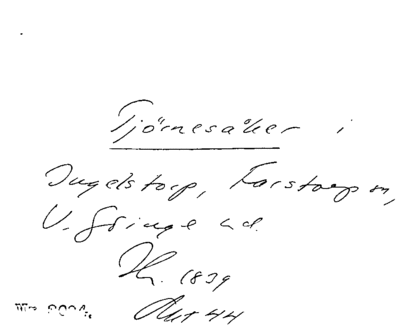 Tjörnesåker i
Ingelstorp, Farstorps sn,
V. Göinge hd.
1839
Akt 44